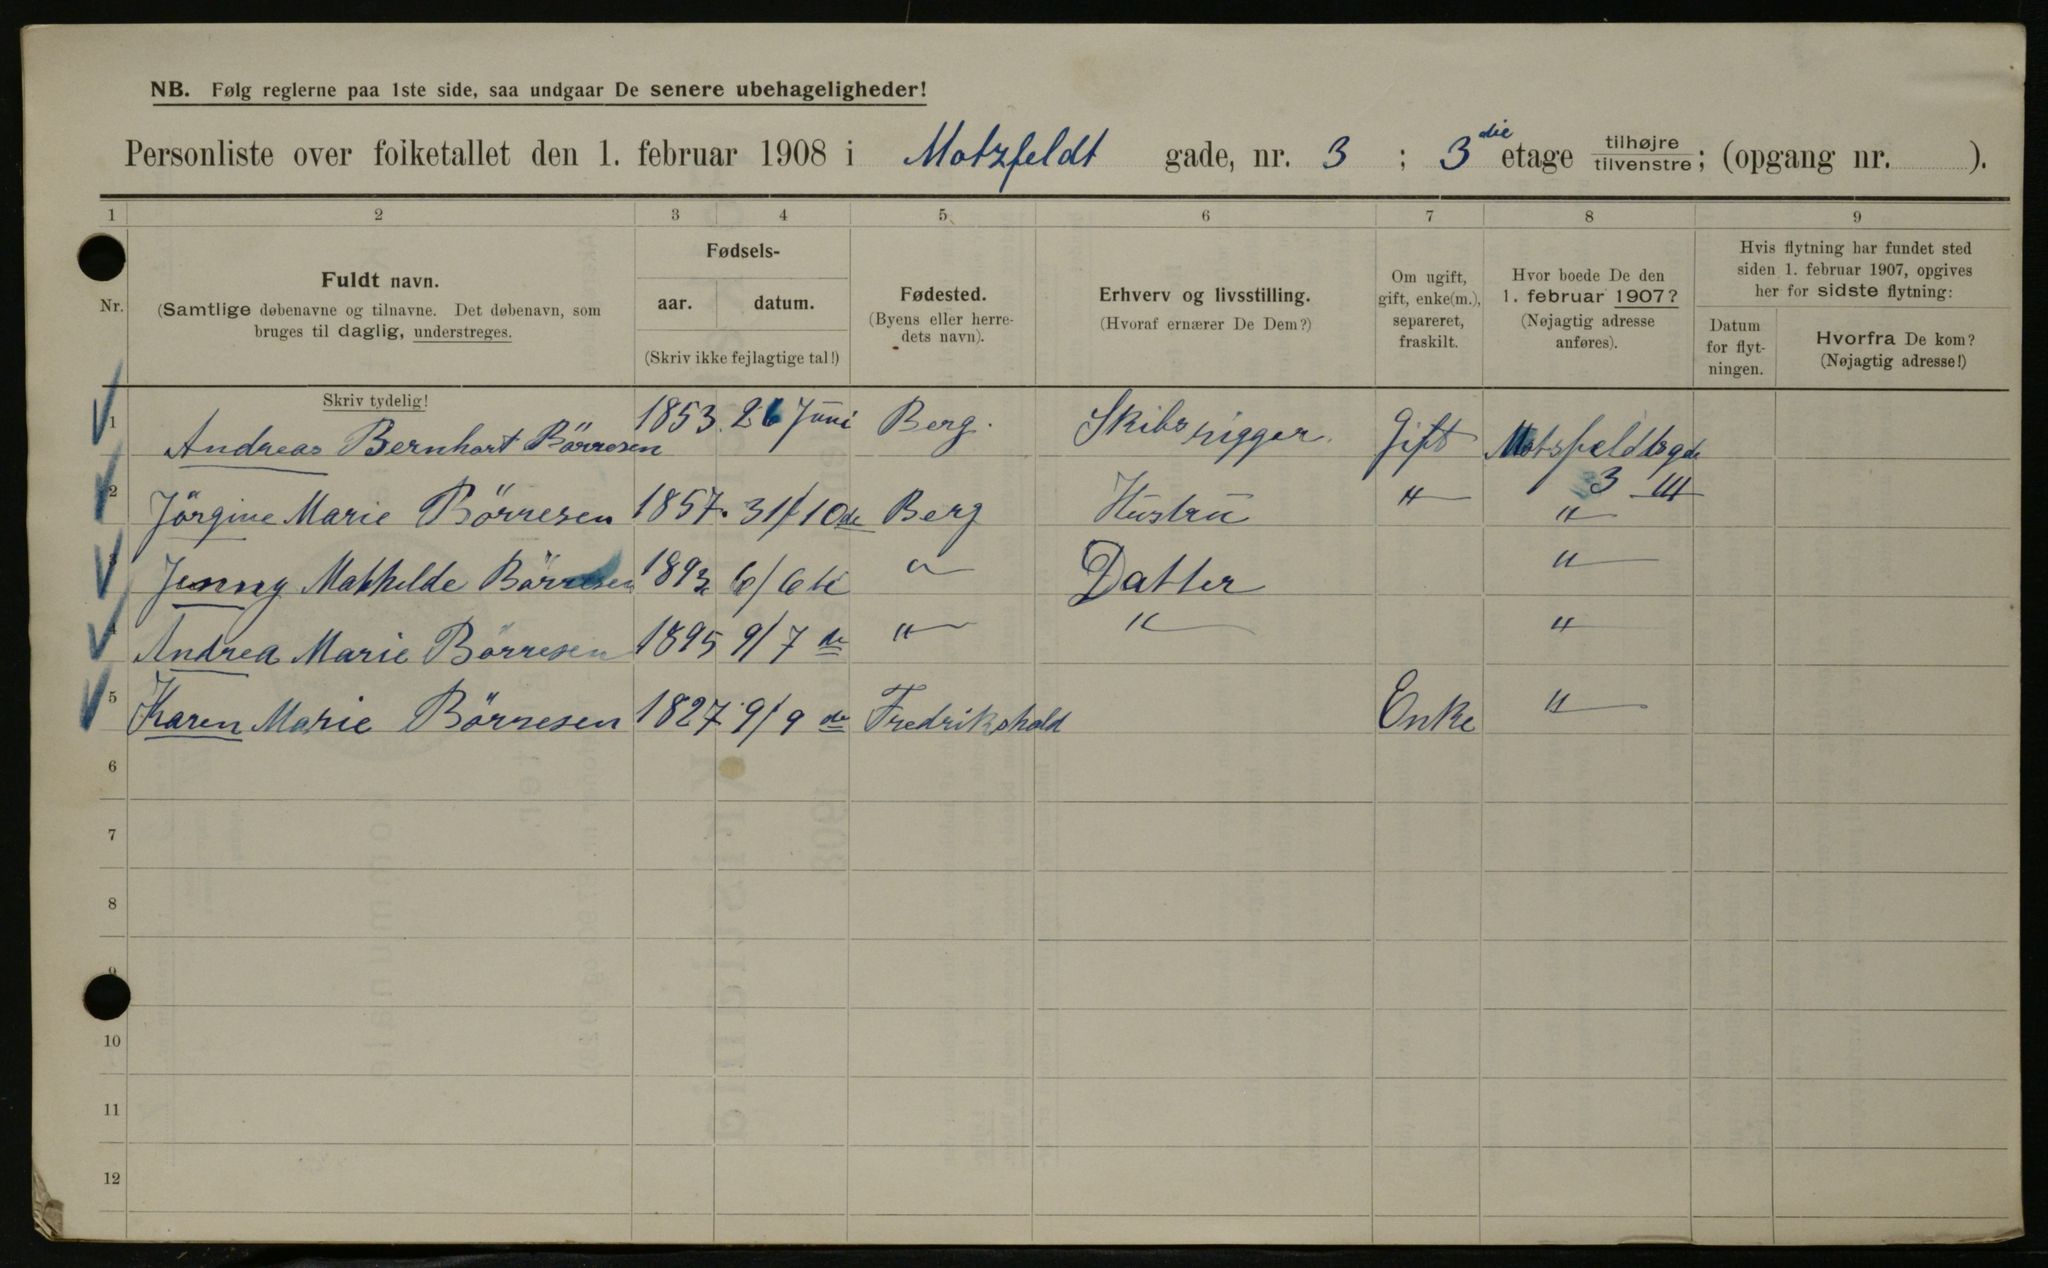 NB. Følg reglerne paa 1ste side, saa undgaar De senere ubehageligheder!
Personliste over folketallet den 1. februar 1908 i Motzfeldt gade, nr. 3 ; 3die etage tilhøjre tilvenstre ; (opgang nr. ).
1 2 3 4 5 6 7 8 9
Nr.
Fuldt navn.
(Samtlige døbenavne og tilnavne. Det døbenavn, som
bruges til daglig, understreges.
Skriv tydelig!
Fødsels-
aar. datum.
(Skriv ikke fejlagtige tal!)
Fødested.
(Byens eller herre-
dets navn).
Erhverv og livsstilling.
(Hvoraf ernærer De Dem?)
Om ugift,
gift, enke(m.),
separeret,
fraskilt.
Hvor boede De den
1. februar 1907?
(Nøjagtig adresse
anføres).
Hvis flytning har fundet sted
siden 1. februar 1907, opgives
her for sidste flytning:
Datum
for flyt-
ningen.
Hvorfra De kom?
(Nøjagtig adresse!)
1 Andreas Bernhart Börresen 1853 26 Juni Berg. Skibsrigger. Gift Motsfeldtsgde
3 III
2 Jörgine Marie Börresen 1857. 31/10de Berg Hustru " "
3 Jenny Mathilde Börresen 1893 6/6te " Datter "
4 Andrea Marie Börresen 1895 9/7de " " "
5 Karen Marie Börresen 1827 9/9de Fredrikshald Enke "
6
7
8
9
10
11
12